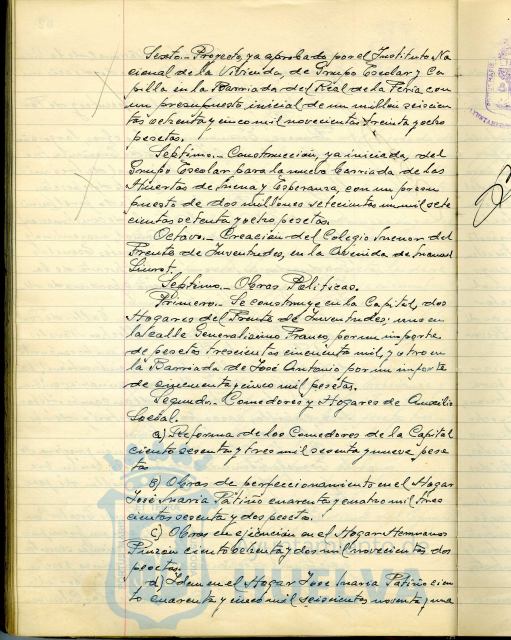 Sexto.- Proyecto, ya aprobado por el Instituto Na
cional de la Vivienda, de Grupo Escolar y Ca
pilla en la Barriada del Real de la Feria con
un presupuesto inicial de un millon seiscien
tos ochenta y cinco mil novecientas treinta y ocho
pesetas.
Septimo.- Construcción, ya iniciada, del
Grupo Escolar para la nueva barriada de las
Huertas de Mena y Esperanza, con un presu
puesto de dos millones setecientas un mil sete
cientas setenta y ocho pesetas.
Octavo.- Creación del Colegio Menor del
Frente de Juventudes, en la Avenida de Manuel
Siurot.
Septimo.- Obras Politicas.
Primero.- Se construye en la Capital, dos
Hogares del Frente de Juventudes; uno en
la calle Generalisimo Franco, por un importe
de pesetas trescientas cincuenta mil, y otro en
la Barriada de José Antonio por un importe
de cincuenta y cinco mil pesetas.
Segundo.- Comedores y Hogares de Auxilio
Social.
a) Reforma de los Comedores de la Capital
ciento sesenta y tres mil sesenta y nueve pese
tas
B) Obras de perfeccionamiento en el Hogar
José Maria Patiño cuarenta y cuatro mil tres
cientas sesenta y dos pesetas.
c) Obras en ejecución en el Hogar Hermanos
Pinzon ciento ochenta y dos mil novecientas dos
pesetas.
d) Idem en el Hogar Jose Maria Patiño cien
to cuarenta y cinco mil seiscientas noventa y una
HUELVA